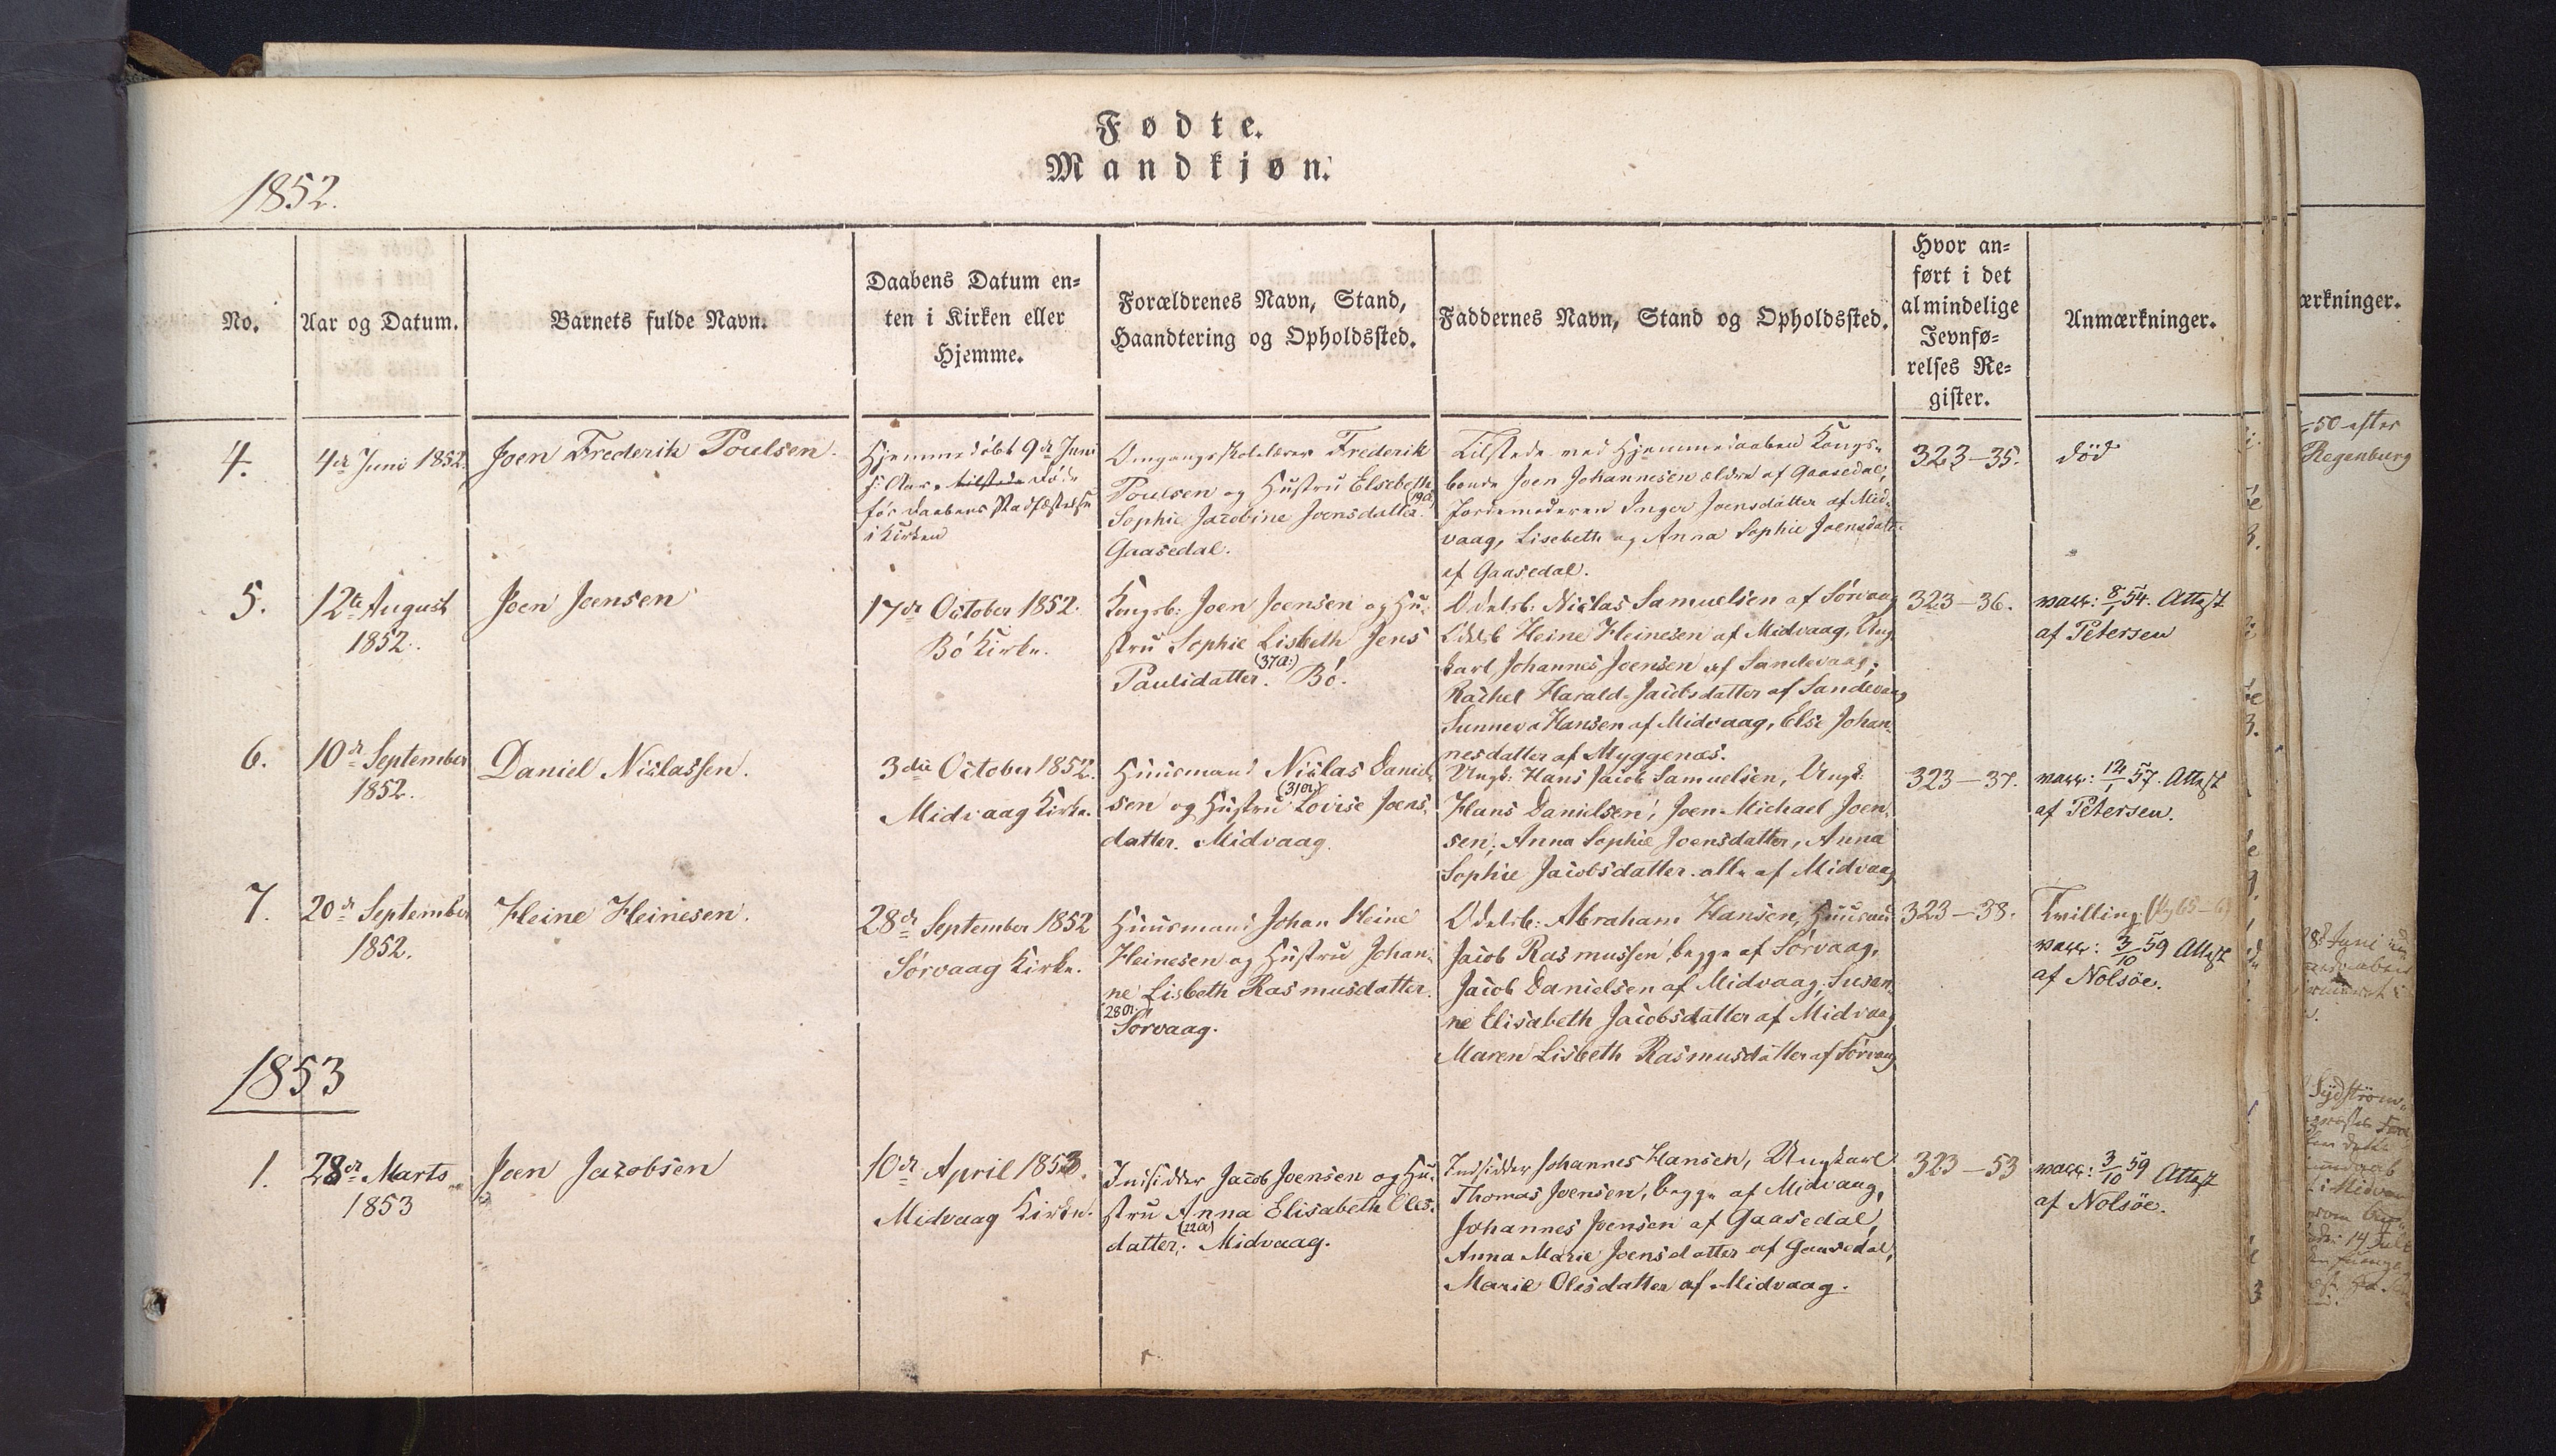 Fødte.
Mandkjøn.
1852.
No.
Aar og Datum.
Barnets fulde Navn.
Daabens Datum en=
ten i Kirken eller
Hjemme.
Forældrenes Navn, Stand,
Haandtering og Opholdssted.
Faddernes Navn, Stand og Opholdssted.
Hvor an=
ført i det
almindelige
Jevnfø=
relses Re=
gister.
Anmærkninger.
ærkninger.
4.
4de Juni 1852.
Joen Frederik Poulsen.
Hjemmedøbt 9de Juni
s: Aar. tilstede Døde
før Daabens Stadfæstelse
i Kirken
Omgangsskolelærer Frederik
Poulsen og Hustru Elsebeth
Sophie Jacobine Joensdatter.
Gaasedal.
Tilstede ved Hjemmedaaben Kongs-
bonde Joen Johannesen ældre af Gaasedal,
Jordemoderen Inger Joensdatter af Mid-
vaag, Lisebeth og Anna Sophie Joensdatter
af Gaasedal.
323-35.
død
5.
12te August
1852.
Joen Joensen
17de October 1852.
Bø Kirke.
Kongsb: Joen Joensen og Hu-
stru Sophie Lisbeth Jens
(37a:)
Paulsdatter. Bø.
Odelsb: Niclas Samuelsen af Sørvaag
Odelsb Heine Heinesen af Midvaag, Ung-
karl Johannes Joensen af Sandevaag;
Rachel Harald-Jacobsdatter af Sandevaag
Sunneva Hansen af Midvaag, Else Johan-
nesdatter af Myggenæs.
323-36.
vacc: 8/1 54. Attest
af Petersen
6.
10de September
1852.
Daniel Niclassen.
3die October 1852.
Midvaag Kirke.
Huusmand Niclas Daniel
(31a)
sen og Hustru Lovise Joens-
datter. Midvaag.
Ungk: Hans Jacob Samuelsen, Ungk:
Hans Danielsen, Joen Michael Joen-
sen; Anna Sophie Joensdatter, Anna
Sophie Jacobsdatter. alle af Midvaag
323-37.
vacc: 12/1 57. Attest
af Petersen.
7.
20de September
1852.
Heine Heinesen.
28de September 1852
Sørvaag Kirke.
Huusmand Johan Heine
Heinesen og Hustru Johan-
ne Lisbeth Rasmusdatter.
28a.
Sørvaag.
Odelsb: Abraham Hansen, Huusm
Jacob Rasmussen, begge af Sørvaag,
Jacob Danielsen af Midvaag; Susan-
ne Elisabeth Jacobsdatter af Midvaag
Maren Lisbeth Rasmusdatter af Sørvaag
323-38.
Tvilling
vacc: 3/10 59 Attest
af Nolsøe.
1853
1.
28de Marts
1853
Joen Jacobsen
10de April 1853.
Midvaag Kirke.
Indsidder Jacob Joensen og Hu-
stru Anna Elisabeth Oles-
(22a)
datter; Midvaag.
Indsidder Johannes Hansen, Ungkarl
Thomas Joensen, begge af Midvaag,
Johannes Joensen af Gaasedal,
Anna Marie Joensdatter af Gaasedal,
Marie Olesdatter af Midvaag.
323-53
vacc: 3/10 59 Attest
af Nolsøe.
50 efter
Regenburg